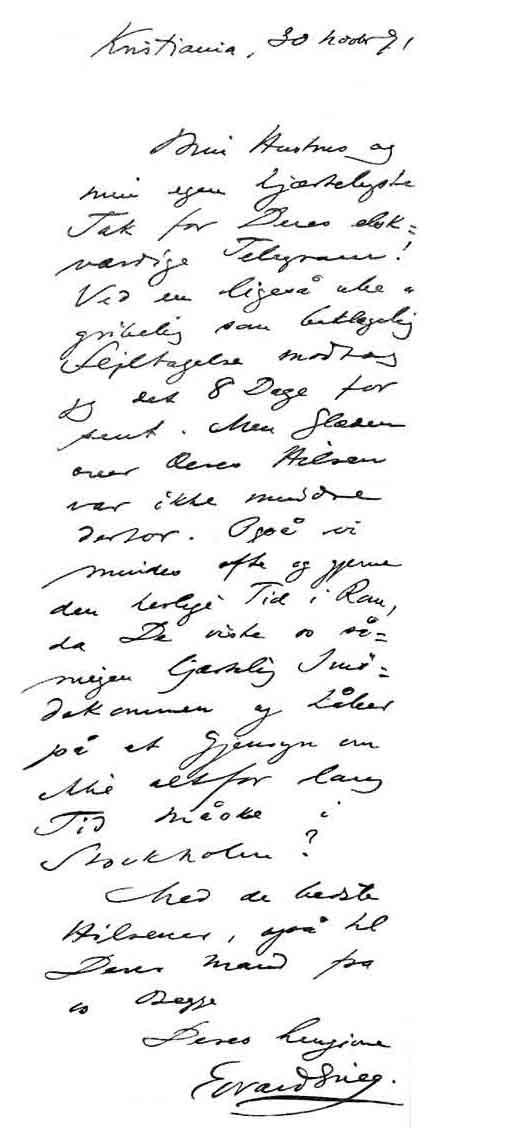 Kristiania, 30 novbr 91
Min Hustrus og
min egen hjærteligste
Tak for Deres elsk=
værdige Telegram!
Ved en ligeså ube=
gribelig som beklagelig
Fejltagelse modtog
jeg det 8 Dage for
sent. Men Glæden
over Deres Hilsen
var ikke mindre
derfor. Også vi
mindes ofte og gjerne
den herlige Tid i Rom,
da De viste os så=
megen hjærtelig Imø=
dekommen og håber
på et Gjensyn om
ikke altfor lang
Tid måske i
Stockholm?
Med de bedste
Hilsener, også til
Deres Mand fra
os Begge
Deres hengivne
Edvard Grieg.